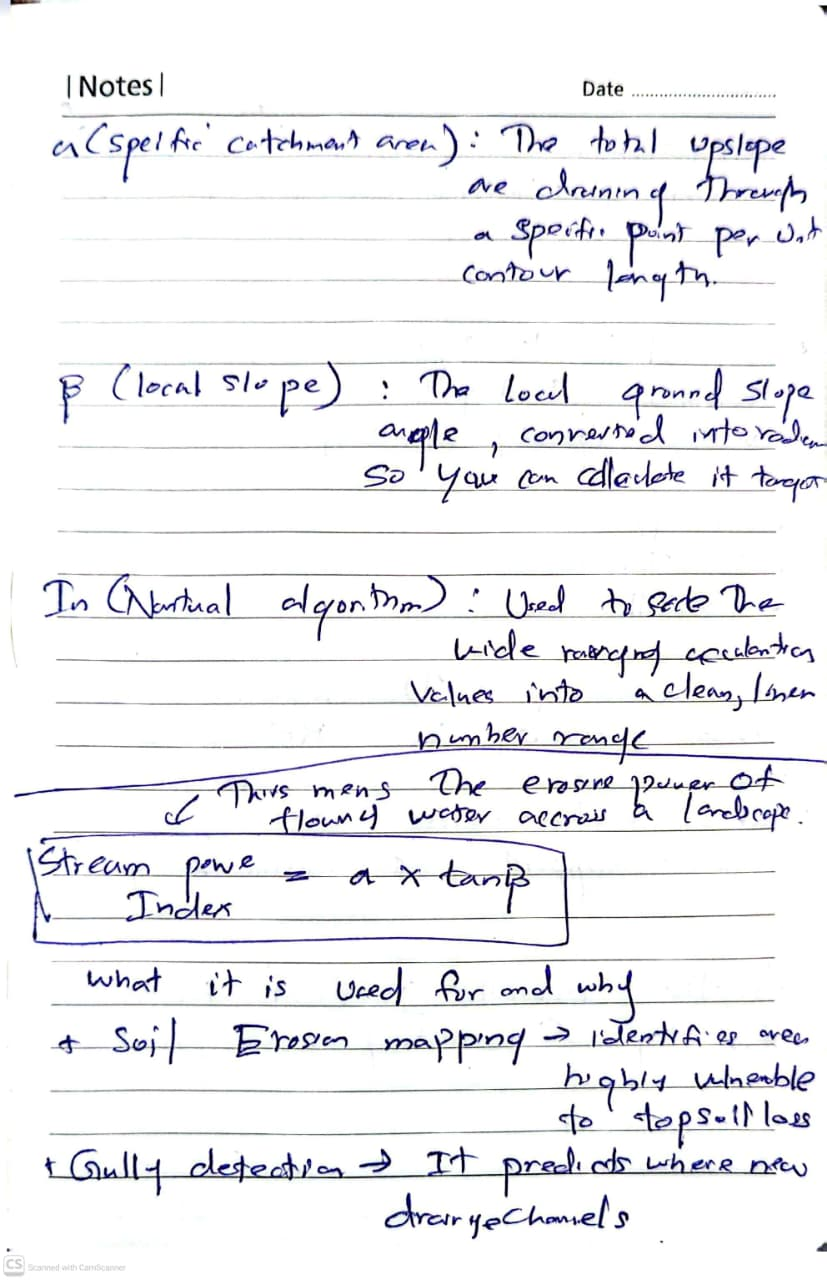 | Notes |
Date ..............................
a (spelfic catchment area) : The total upslope
are draining through
a specific point per unit
contour length.
β (local slope) : The local ground slope
angle, converted into radian
so you can calculate it target
In (Nartual algorithm) : Used to scale the
wide ranging accumulation
values into a clean, linear
number range
This mens The erosive power of
flowing water accross a landscape.
Stream powe = a × tanβ
Index
what it is used for and why
+ Soil Erosion mapping → identifies area
highly vulnerable
to topsoil loss
+ Gully detection → It predicts where new
drainage channels
CS Scanned with CamScanner